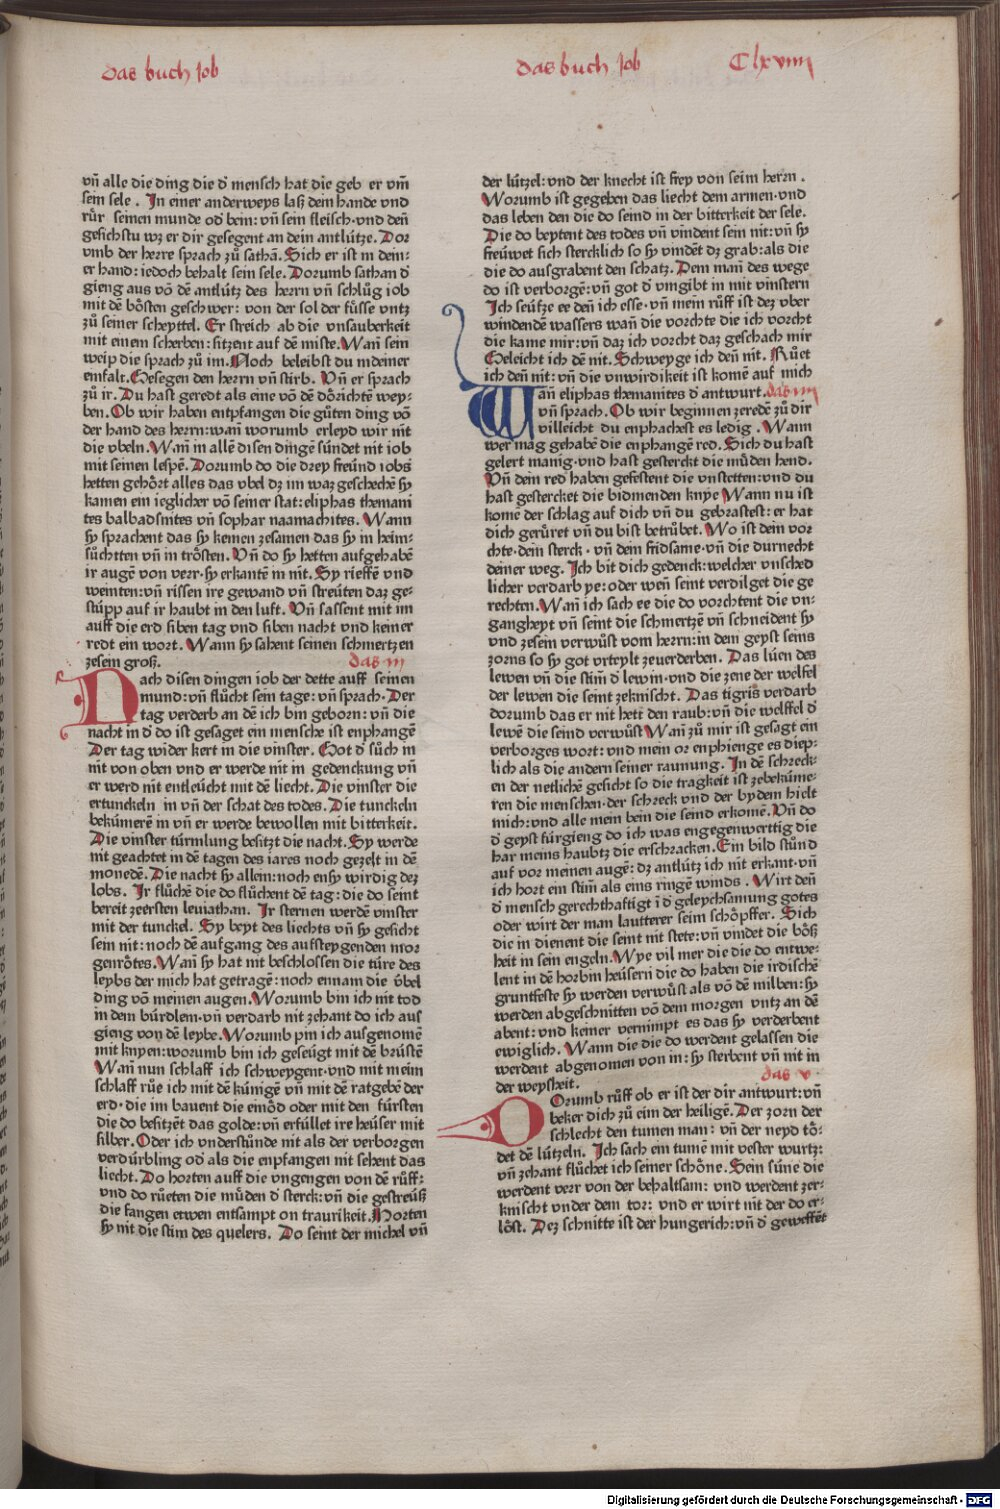 das buch Job
das buch Job
Clxviiij
vñ alle die ding die d᷑ mensch hat die geb er vm̃
sein sele . In einer anderweys laß dein hande vnd
rür seinen munde od᷑ bein: vñ sein fleisch·vnd deñ
gesichstu wz er dir gesegent an dein antlütze. Dor
vmb der herre sprach zů sathã. Sich er ist in dein-
er hand: iedoch behalt sein sele. Dorumb sathan d᷑
gieng aus võ dẽ antlütz des herrn vñ schlůg iob
mit dẽ bösten geschwer: von der sol der füsse vntz
zů seiner scheyttel. Er streich ab die vnsauberkeit
mit einem scherben: sitzent auf dẽ miste. Wañ sein
weip die sprach zů im. Noch beleibst du in deiner
einfalt. Gesegen den herrn vñ stirb. Vñ er sprach
zů ir. Du hast geredt als eine võ dẽ dörichtẽ wey-
ben. Ob wir haben entpfangen die gůten ding võ
der hand des herrn: wañ worumb erleyd wir nit
die vbeln. Wañ in allẽ disen dingẽ sündet nit iob
mit seinen lespẽ. Dorumb do die drey freünd iobs
hetten gehört alles das vbel dz im waz geschechẽ sy
kamen ein ieglicher võ seiner stat: eliphas themani
tes balbadsuites vñ sophar naamachites. Wann
sy sprachent das sy keinen zesamen das sy in heim-
sůchtten vñ in trösten. Vñ do sy hetten aufgehabẽ
ir augẽ von verr·sy erkantẽ in nit. Sy rieffẽ vnd
weinten: vñ rissen ire gewand vñ streüten daz ge-
stüpp auf ir haubt in den luft. Vñ sassent mit im
auff die erd siben tag vnd siben nacht vnd keiner
redt ein wort. Wann sy sahent seinen schmertzen
zesein groß.
das iij
Nach disen dingen iob der dette auff seinen
mund: vñ flücht sein tage: vñ sprach. Der
tag verderb an dẽ ich bin geborn: vñ die
nacht in d᷑ do ist gesaget ein mensche ist enphangẽ
Der tag wider kert in die vinster. Got d᷑ sůch in
nit von oben vnd er werde nit in gedenckung vñ
er werd nit entleücht mit dẽ liecht. Die vinster die
ertunckeln in vñ der schat des todes. Die tunckeln
bekümerẽ in vñ er werde bewollen mit bitterkeit.
Die vinster türmlung besitzt die nacht. Sy werde
nit geachtet in dẽ tagen des iares noch gezelt in dẽ
monedẽ. Die nacht sy allein: noch ensy wirdig dez
lobs. Ir flůchẽ die do flůchent dẽ tag: die do seint
bereit zeersten leuiathan. Ir sternen werdẽ vinster
mit der tunckel. Sy beyt des liechts vñ sy gesicht
sein nit: noch dẽ aufgang des aufsteygenden mor
genrötes. Wañ sy hat nit beschlossen die türe des
leybs der mich hat getragẽ: noch ennam die v̈bel
ding võ meinen augen. Worumb bin ich nit tod
in dem bürdlein·vñ verdarb nit zehant do ich aus
gieng von dẽ leybe. Worumb pin ich aufgenomẽ
mit knyen: worumb bin ich geseügt mit dẽ brüstẽ
Wañ nun schlaff ich schweygent·vnd mit meim
schlaff rüe ich mit dẽ künigẽ vñ mit dẽ ratgebẽ der
erd·die im bauent die einöd oder mit den fürsten
die do besitzẽt das golde: vñ erfüllet ire heüser mit
silber. Oder ich vnderstůnde nit als der verborgen
verdürbling od᷑ als die enpfangen nit sehent das
liecht. Do horten auff die vngengen von dẽ rüff:
vnd do rüeten die müden d᷑ sterck: vñ die gestreüß
die fangen etwen entsampt on traurikeit. Horten
sy nit die stim des quelers. Do seint der michel vñ
der lützel: vnd der knecht ist frey von seim herrn.
Worumb ist gegeben das liecht dem armen·vnd
das leben den die do seind in der bitterkeit der sele.
Die do beytent des todes vñ vindent sein nit: vñ sy
freüwet sich stercklich so sy vindẽt dz grab: als die
die do ausgrabent den schatz. Dem mañ des wege
do ist verborgẽ: vñ got d᷑ vmgibt in mit vinstern
Ich seüftze ee deñ ich esse·vñ mein rüff ist dez vber
windendẽ wassers wañ die vorchte die ich vorcht
die kame mir: vñ daz ich vorcht daz geschach mir
Geleicht ich dẽ nit. Schweyge ich deñ nit. Růet
ich deñ nit: vñ die vnwirdikeit ist komẽ auf mich
das iiij
Wañ eliphas themanites d᷑ antwurt.
vñ sprach. Ob wir beginnen zeredẽ zů dir
villeicht du enphachest es ledig. Wann
wer mag gehabẽ die enphangẽ red. Sich du hast
gelert manig·vnd hast gesterckt die müden hend.
Vñ dein red haben gefestent die vnstetten: vnd du
hast gestercket die bidmenden knye Wann nu ist
komẽ der schlag auf dich vñ du gebrastest: er hat
dich gerüret vñ du bist betrübet. Wo ist dein vor
chte·dein sterck·vñ dein fridsame·vñ die durnecht
deiner weg. Ich bit dich gedenck: welcher vnsched
licher verdarb ye: oder weñ seint verdilget die ge
rechten. Wañ ich sach ee die do vorchtent die vn-
gangheyt vñ seint die schmertzẽ vñ schneident sy
vnd zesein verwüst vom herrn: in dem geyst seins
zorns so sy got vrteylt zeuerderben. Das lüen des
lewen vñ die stim̃ d᷑ lewin·vnd die zene der welfel
der lewen die seint zeknischt. Das tigris verdarb
dorumb das er nit hett den raub: vñ die welffel d᷑
lewẽ die seind verwüst Wañ zů mir ist gesagt ein
verborges wort: vnd mein or enphienge es diep-
lich als die andern seiner raunung. In dẽ schreck-
en der netlichẽ gesicht so die tragkeit ist zebekůme-
ren die menschen·der schreck vnd der bydem hielt
mich: vnd alle mein bein die seind erkomẽ. Vñ do
d᷑ geyst fürgieng do ich was engegenwerttig die
har meins haubtz die erschracken. Ein bild stůnd
auf vor meinen augẽ: dz antlütz ich nit erkant·vñ
ich hort ein stim̃ als eins ringẽ winds. Wirt deñ
d᷑ mensch gerechthaftigt ĩ d᷑ geleychsamung gotes
oder wirt der man lautterer seim schöpffer. Sich
die in dienent die seint nit stete: vñ vindet die böß
heit in sein engeln. Wye vil mer die die do entwe-
lent in dẽ horbin heüsern die do haben die irdischẽ
gruntfeste sy werden verwüst als võ dẽ milben: sy
werden abgeschnitten võ dem morgen vntz an dẽ
abent: vnd keiner vernimpt es das sy verderbent
ewiglich. Wann die die do werdent gelassen die
werdent abgenomen von in: sy sterbent vñ nit in
der weysheit.
das v
Dorumb rüff ob er ist der dir antwurt: vñ
beker dich zů eim der heiligẽ. Der zorn der
schlecht den tumen man: vñ der neyd tö-
det dẽ lützeln. Ich sach ein tumẽ mit vester wurtz:
vñ zehant flůchet ich seiner schöne. Sein süne die
werdent verr von der behaltsam: vnd werdent zer-
knischt vnder dem tor: vnd er wirt nit der do er-
löst. Dez schnitte ist der hungerich: vñ d᷑ geweffẽt
Digitalisierung gefördert durch die Deutsche Forschungsgemeinschaft - DFG